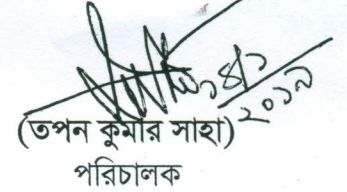 ১৪/১
২০১৯
(তপন কুমার সাহা)
পরিচালক